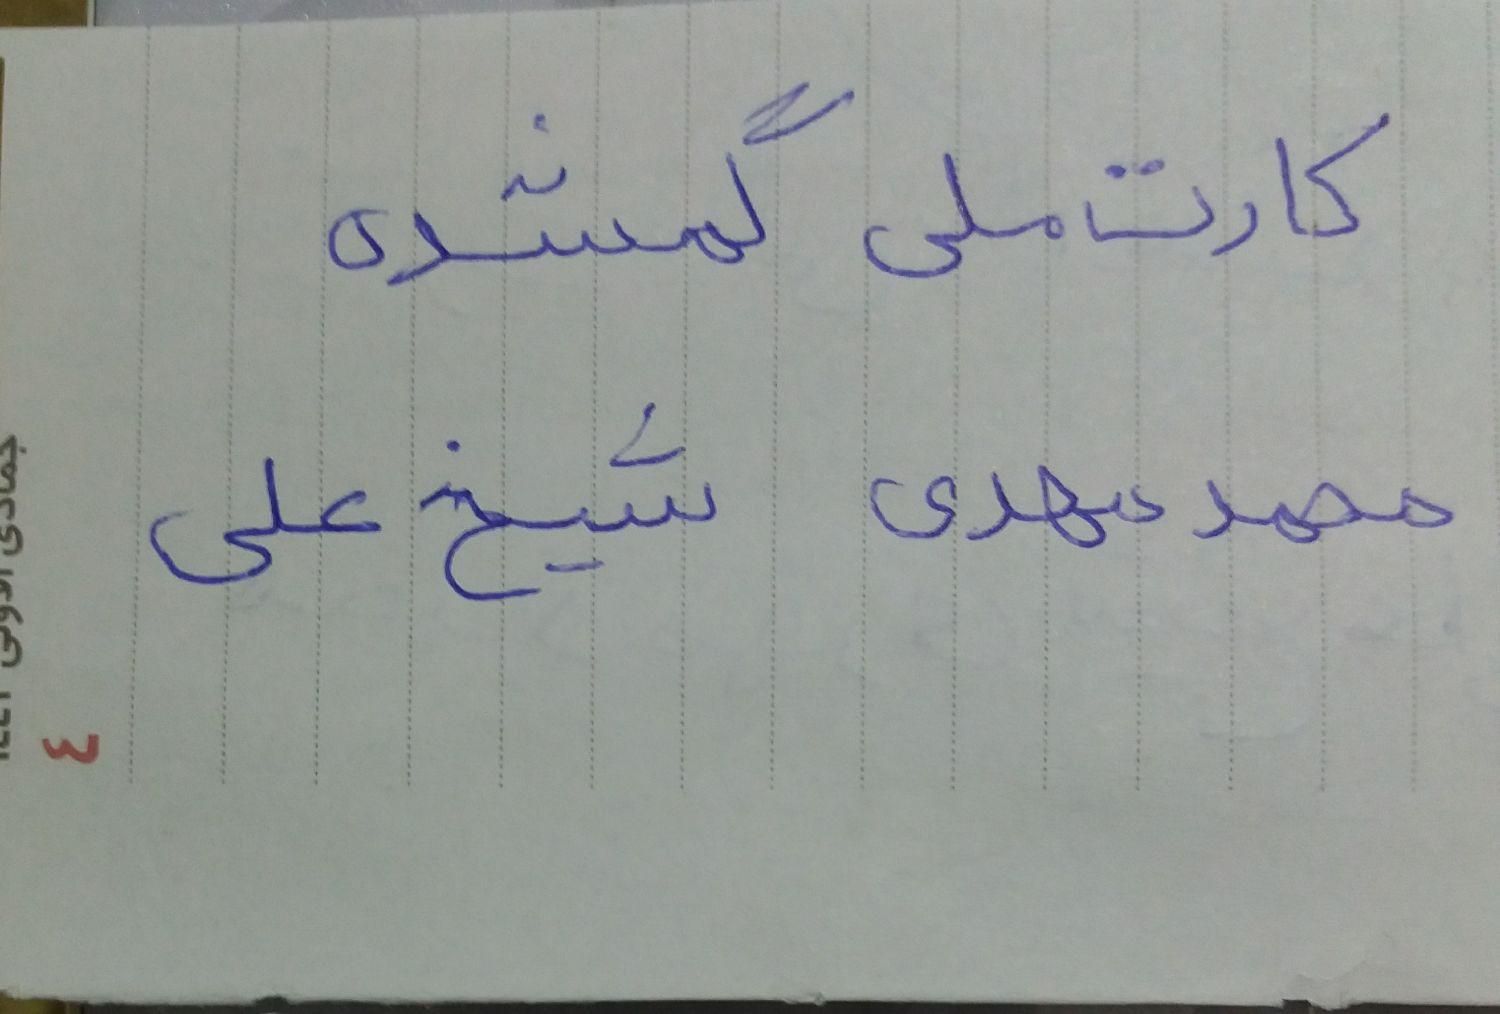 کارت ملی گمشده
محمد مهدی شیخ علی
جمادی الاولی
٤